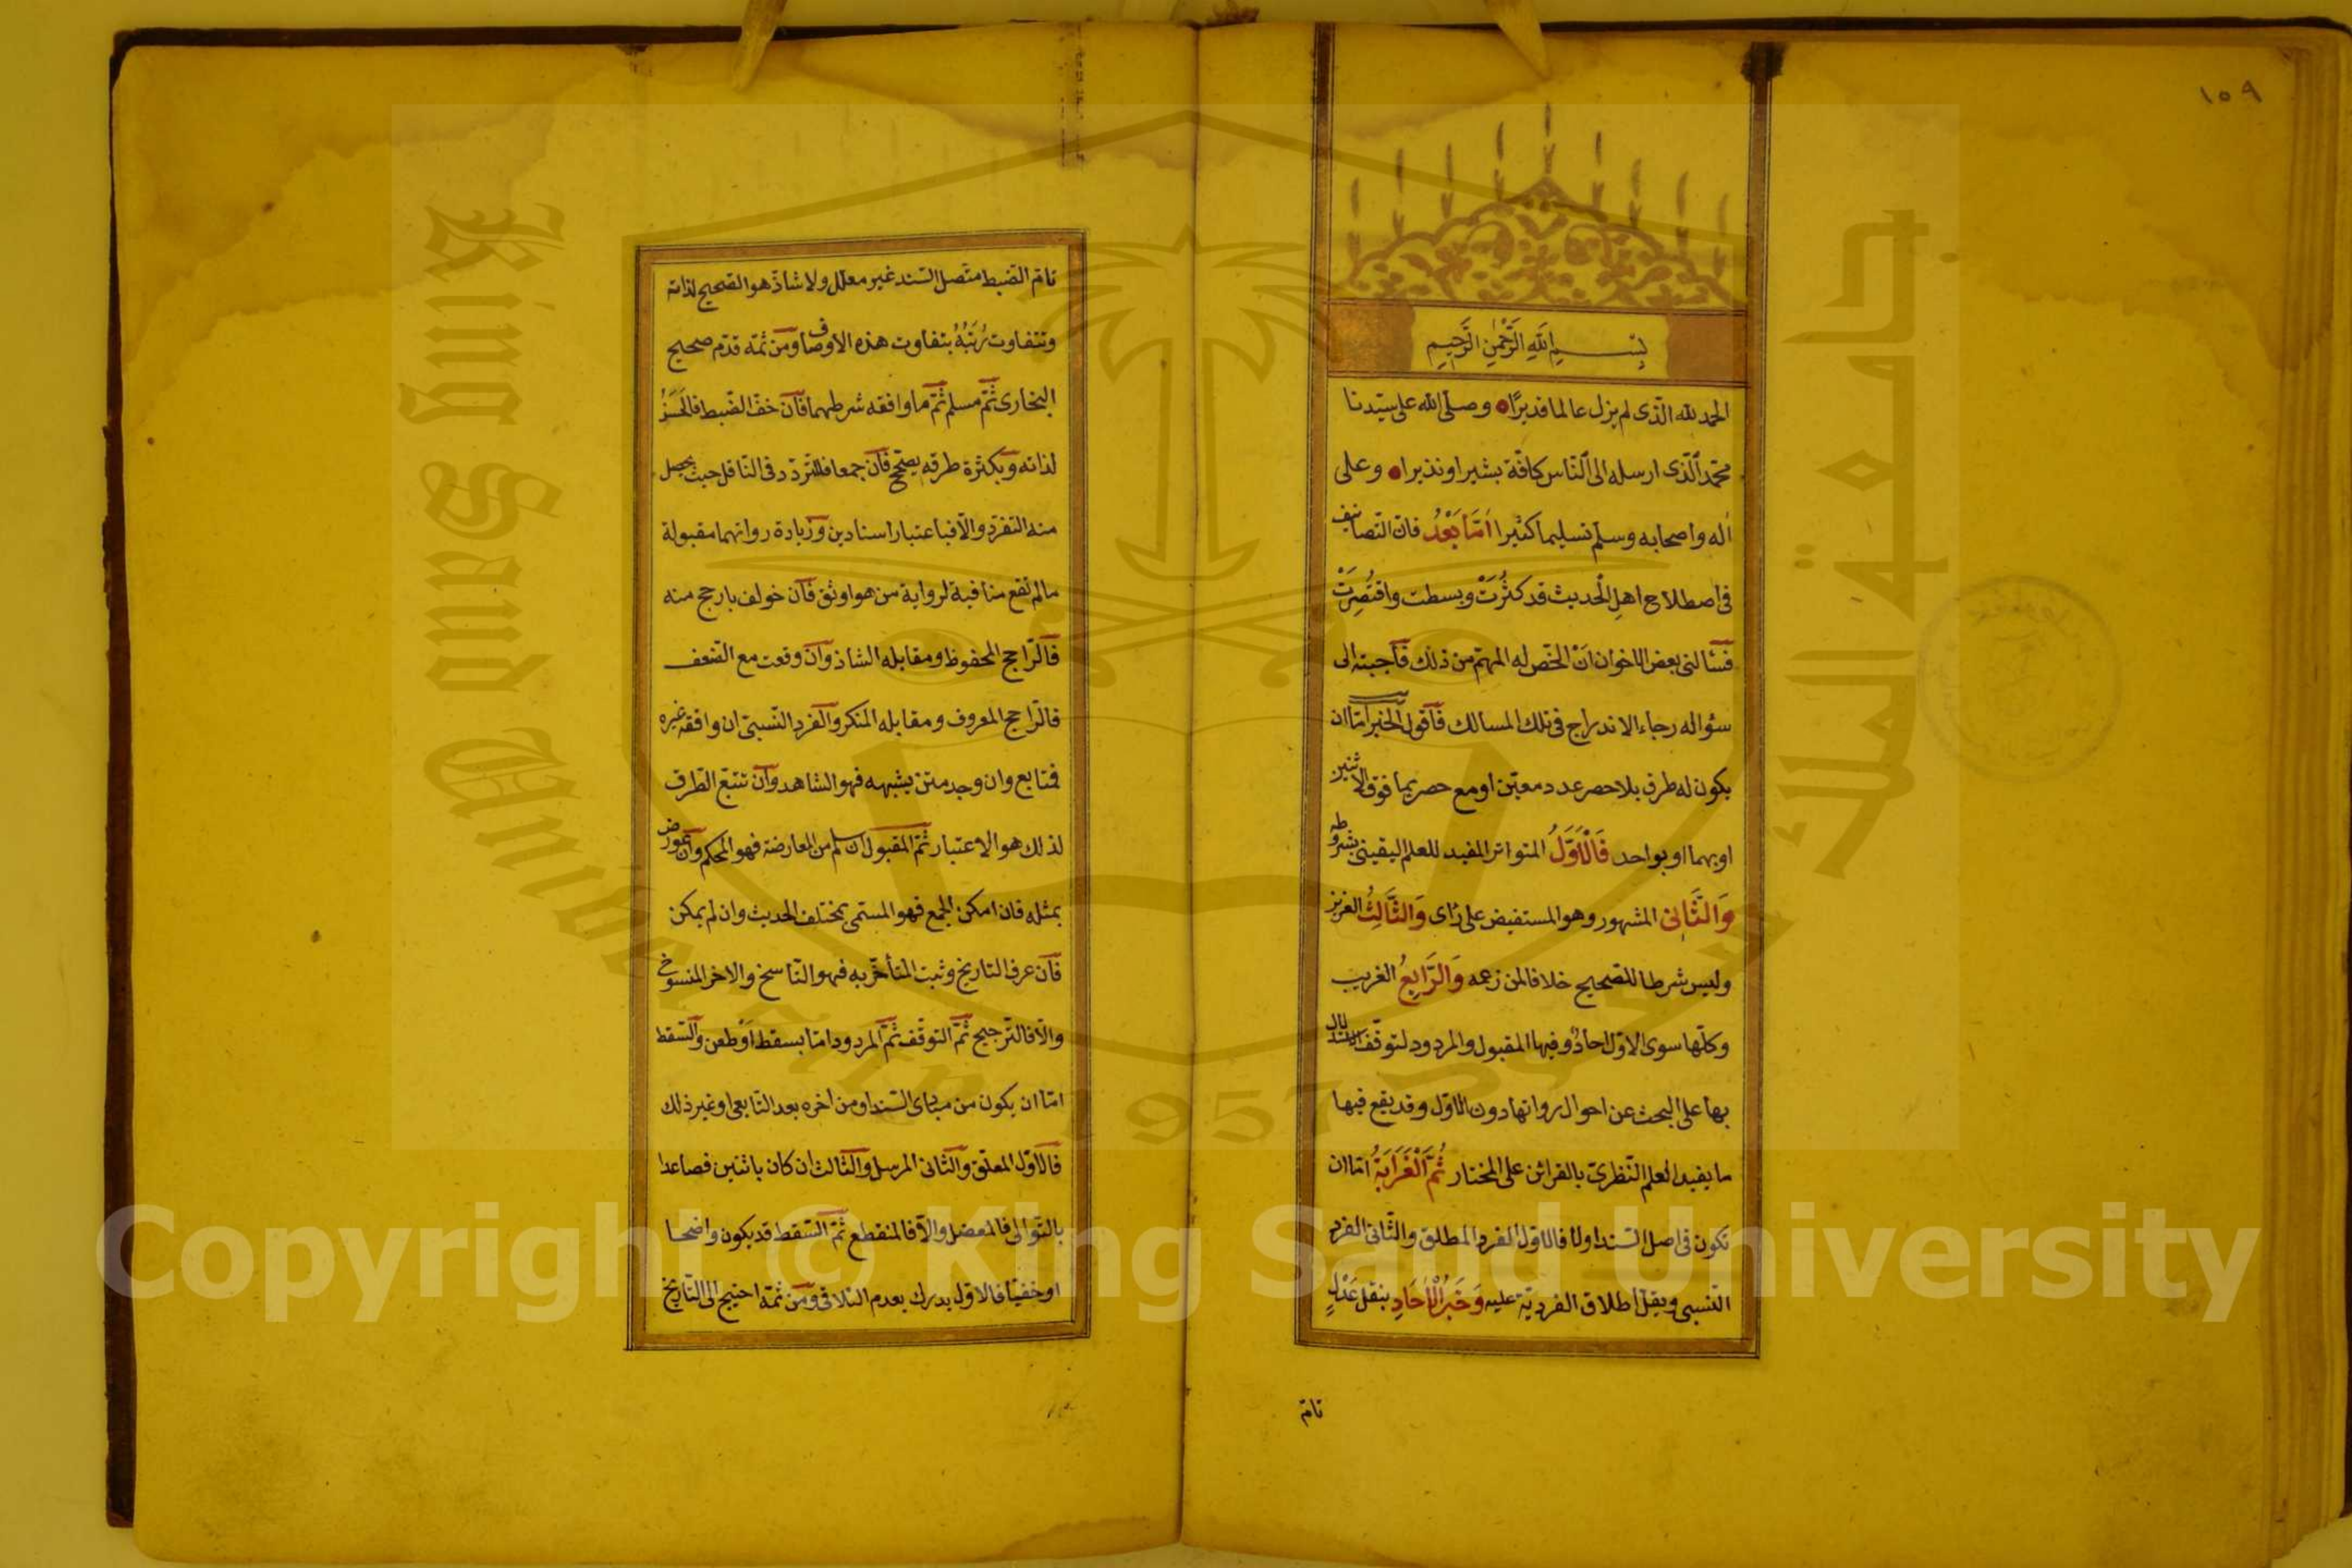 ١٥٩
بسم الله الرحمن الرحيم
الحمد لله الّذى لم يزل عالما قديرًا وصلّى الله على سيّدنا
محمّد الّذى ارسله الى النّاس كافّة بشيرا ونذيرا وعلى
اٰله واصحابه وسلّم تسليما كثيرا امّا بَعْدُ فانّ التّصانيف
فى اصطلاح اهلِ الْحديث قد كثُرَتْ وبسطت واقتُصِرَتْ
فسَئالنى بعض الاخوان اَنْ الخّص له المهمّ من ذلك فاَجبته الى
سؤاله رجاء الاندراج فى تلك المسالك فاَقول الخبر امّا ان
يكون له طرق بلا حصر عدد معيّن او مع حصر بما فوق الاثنين
او بهما او بواحد فَالْاَوَّلُ المتواتر المفيد للعلم اليقينى بشروطه
وَالثَّانِى المشهور وهو المستفيض على رَاى وَالثَّالِثُ العزيز
وليس شرطا للصّحيح خلافا لمن زعمه وَالرَّابِعُ الغريب
وكلّها سوى الاوّل احادٌ وفيها المقبول والمردود لتوقّف الاستدلال
بها على البحث عن احوال رواتها دون الاوّل وقد يقع فيها
ما يفيد العلم النّظرىّ بالقرائن على المختار ثُمَّ الْغَرَابَةُ امّا ان
تكون فى اصل السّند اولا فالاوّل الفرد المطلق والثّانى الفرد
النّسبى ويقلّ اطلاق الفرديّة عليه وَخَبَرُ الْاٰحَادِ بنقل عَدْلٍ
تامّ
تامّ الضّبط متّصل السّند غير معلّل ولا شاذّ هو الصّحيح لذاته
وتتفاوت رُتَبُهُ بتفاوت هذه الاوصاف ومن ثمّه قدّم صحيح
البخارى ثُمّ مسلم ثُمّ ما وافقه شرطهما فان خفّ الضّبط فالحَسَنُ
لذاته وبكثرة طرقه يصحّح فان جمعا فللتّردّد فى النّاقل حيث يحصل
منه التفرّد والّا فباعتبار اسنادين وزيادة رواتهما مقبولة
مالم تقع منافية لرواية من هو اوثق فان خولف بارجح منه
فالرّاجح المحفوظ ومقابله الشاذ وان وقعت مع الضّعف
فالرّاجح المعروف ومقابله المنكر والفرد النّسبىّ ان وافقه غيره
فمتابع وان وجد متن يشبهه فهو الشاهد وان تتبّع الطّرق
لذلك هو الاعتبار ثمّ المقبول ان سلم من المعارضة فهو المحكم وان عورض
بمثله فان امكن الجمع فهو المسمّى بمختلف الحديث وان لم يمكن
فان عرف التاريخ وثبت المتأخّر به فهو النّاسخ والاخر المنسوخ
والّا فالتّرجيح ثمّ التوقّف ثمّ المردود امّا بسقط اَوْطعن والسّقط
امّا ان يكون من مبادى السّند او من اخره بعد التابعى او غير ذلك
فالاوّل المعلّق والثانى المرسل والثالث ان كان باثنين فصاعدا
بالتّوالى فالمعضل والّا فالمنقطع ثمّ السّقط قد يكون واضحا
او خفيّا فالاوّل يدرك بعدم التلاقى ومن ثمّة احتيج الى التّاريخ
King Saud University
1957
جامعة الملك سعود
Copyright © King Saud University